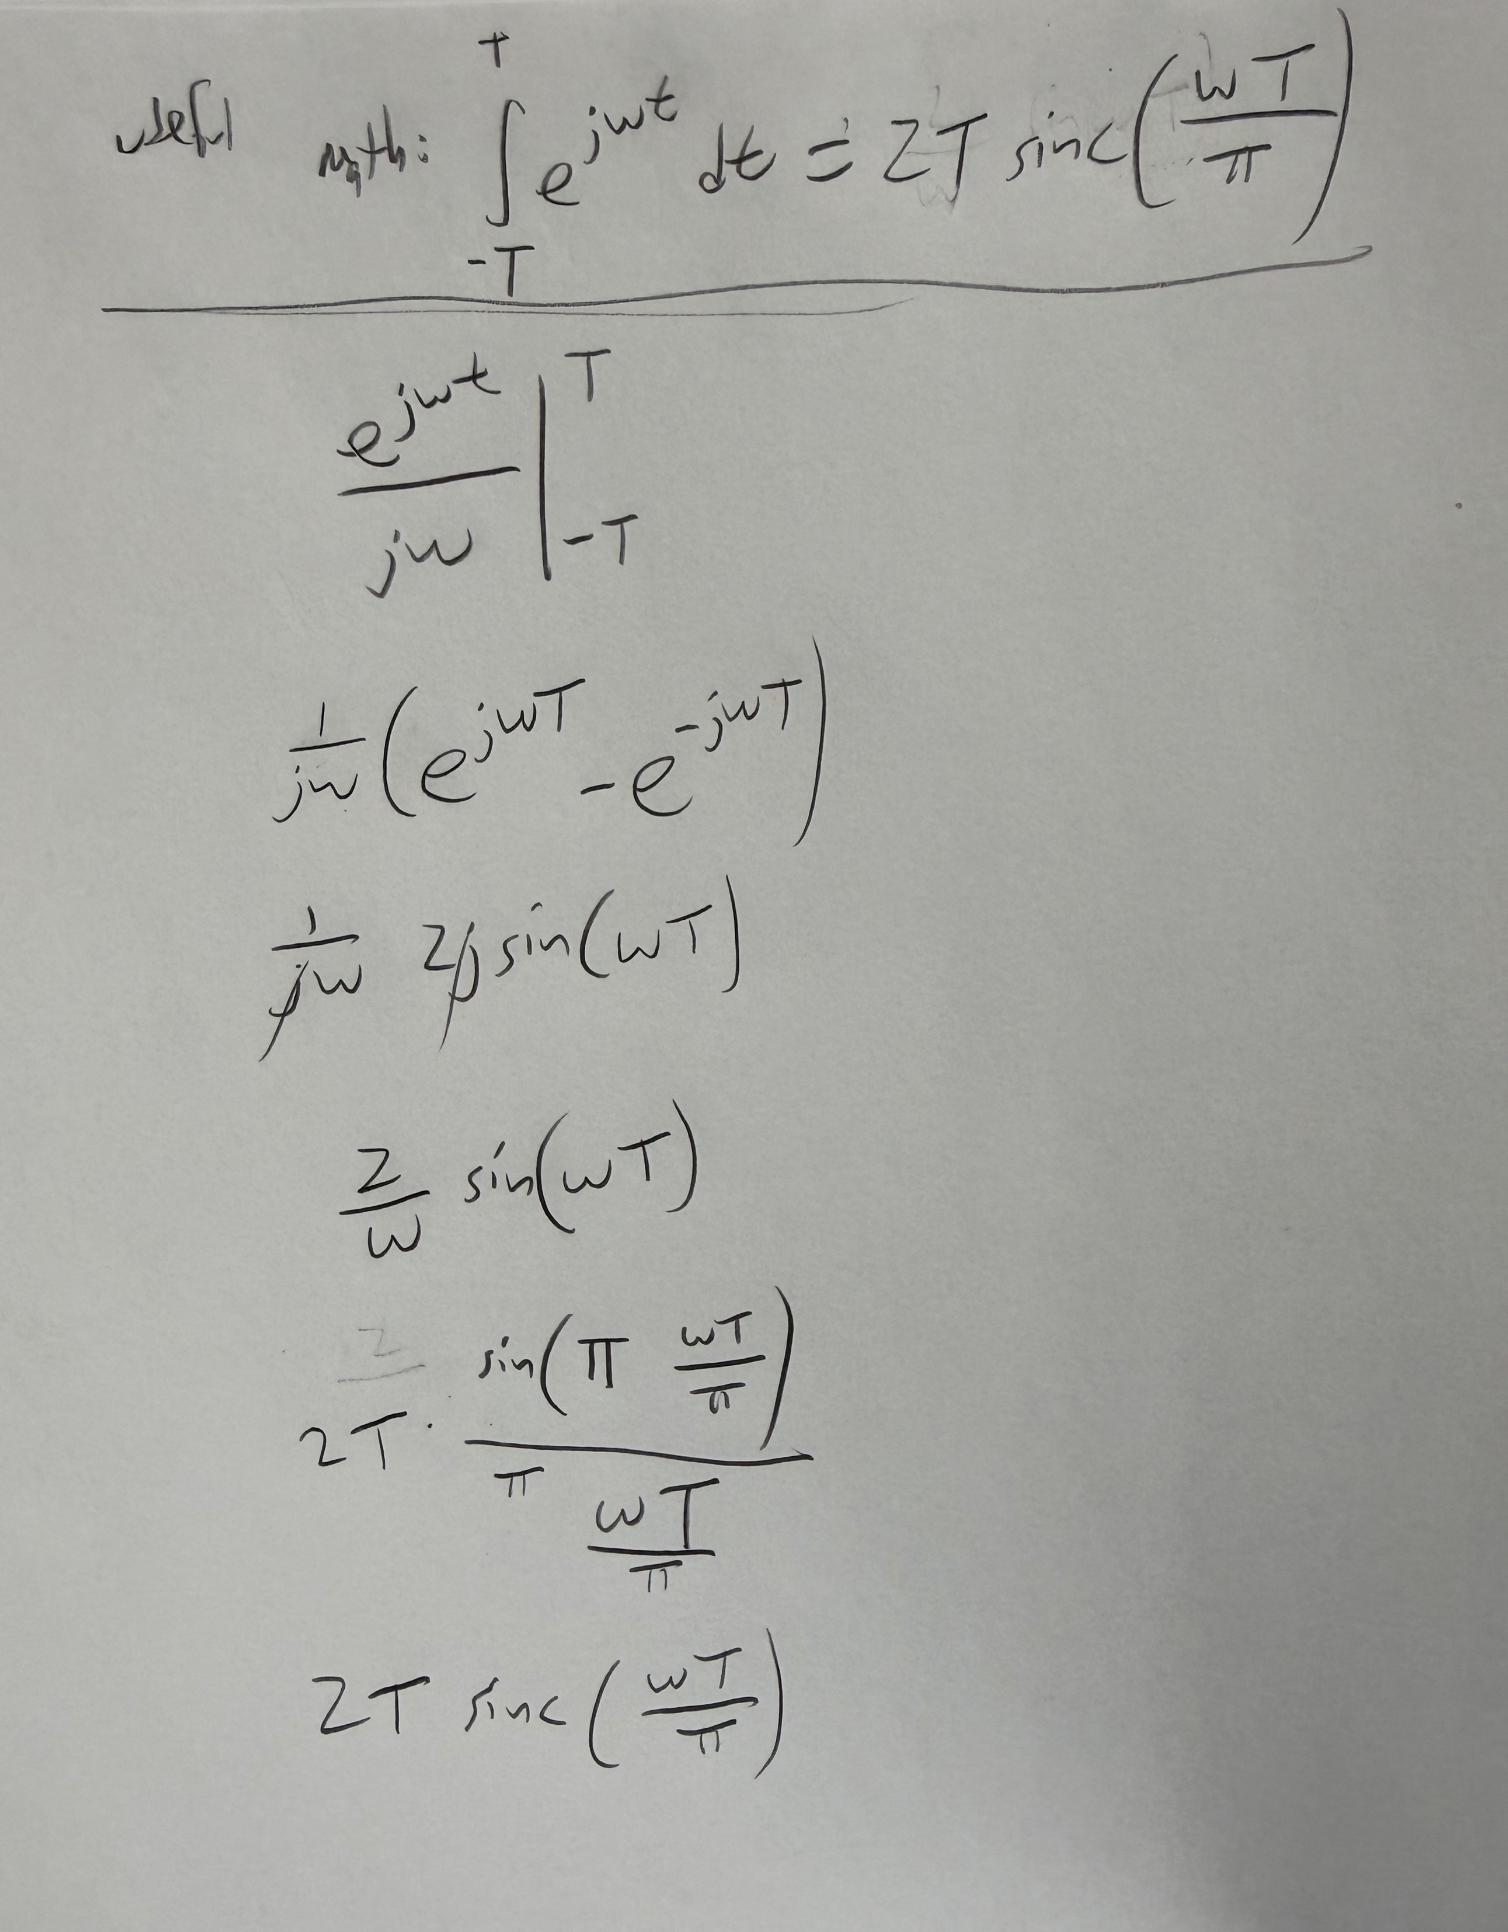 useful math: ∫_{-T}^{T} e^{jωt} dt = 2T sinc(ωT/π)
e^{jωt}/jω |_{-T}^{T}
1/jω (e^{jωT} - e^{-jωT})
1/jω 2j sin(ωT)
2/ω sin(ωT)
2
2T · sin(π ωT/π) / (π ωT/π)
2T sinc(ωT/π)